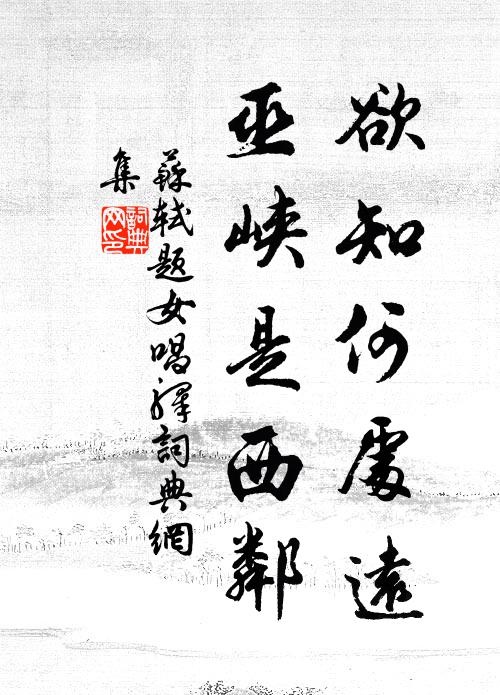 欲知何處遠
巫峽是西鄰
蘇軾題女唱驛詞典網
集
詞典
网印